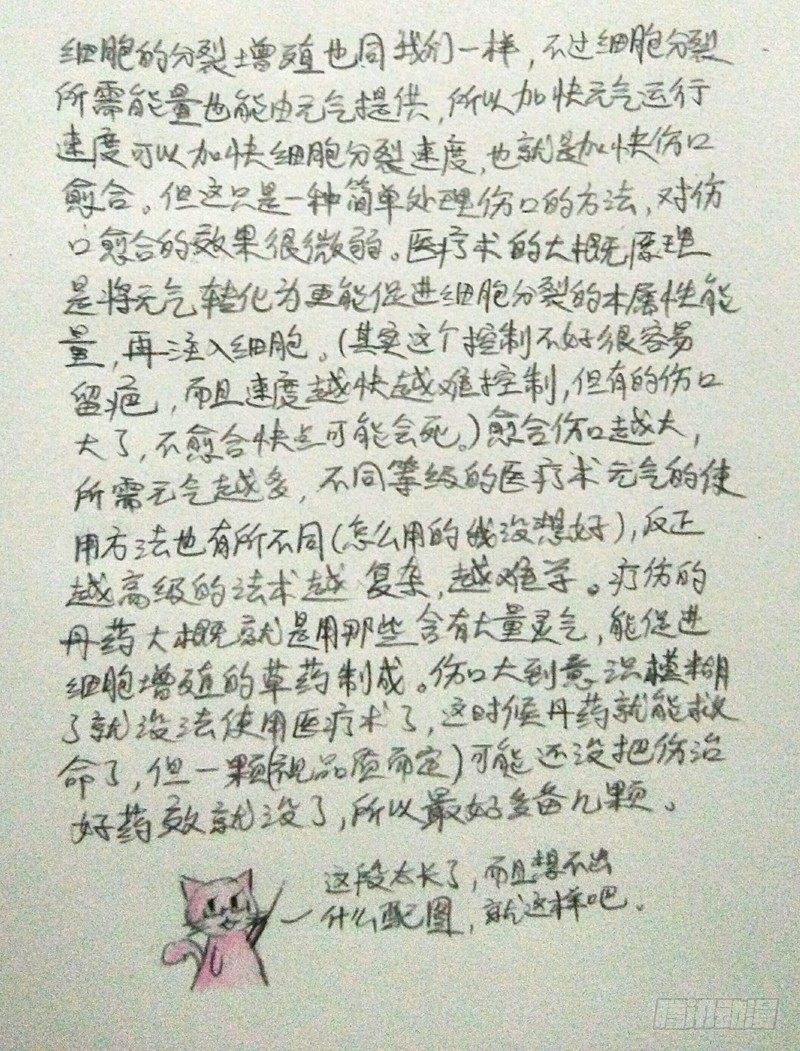 细胞的分裂增殖也同我们一样，不过细胞分裂
所需能量也能由元气提供，所以加快元气运行
速度可以加快细胞分裂速度，也就是加快伤口
愈合。但这只是一种简单处理伤口的方法，对伤
口愈合的效果很微弱。医疗术的大概原理
是将元气转化为更能促进细胞分裂的木属性能
量，再注入细胞。（其实这个控制不好很容易
留疤，而且速度越快越难控制，但有的伤口
大了，不愈合快点可能会死。）愈合伤口越大，
所需元气越多，不同等级的医疗术元气的使
用方法也有所不同（怎么用的我没想好），反正
越高级的法术越复杂，越难学。疗伤的
丹药大概就是用那些含有大量灵气，能促进
细胞增殖的草药制成。伤口大到意识模糊
了就没法使用医疗术了，这时候丹药就能救
命了，但一颗（视品质而定）可能还没把伤治
好药效就没了，所以最好多备几颗。
这段太长了，而且想不出
什么配图，就这样吧。
腾讯动漫